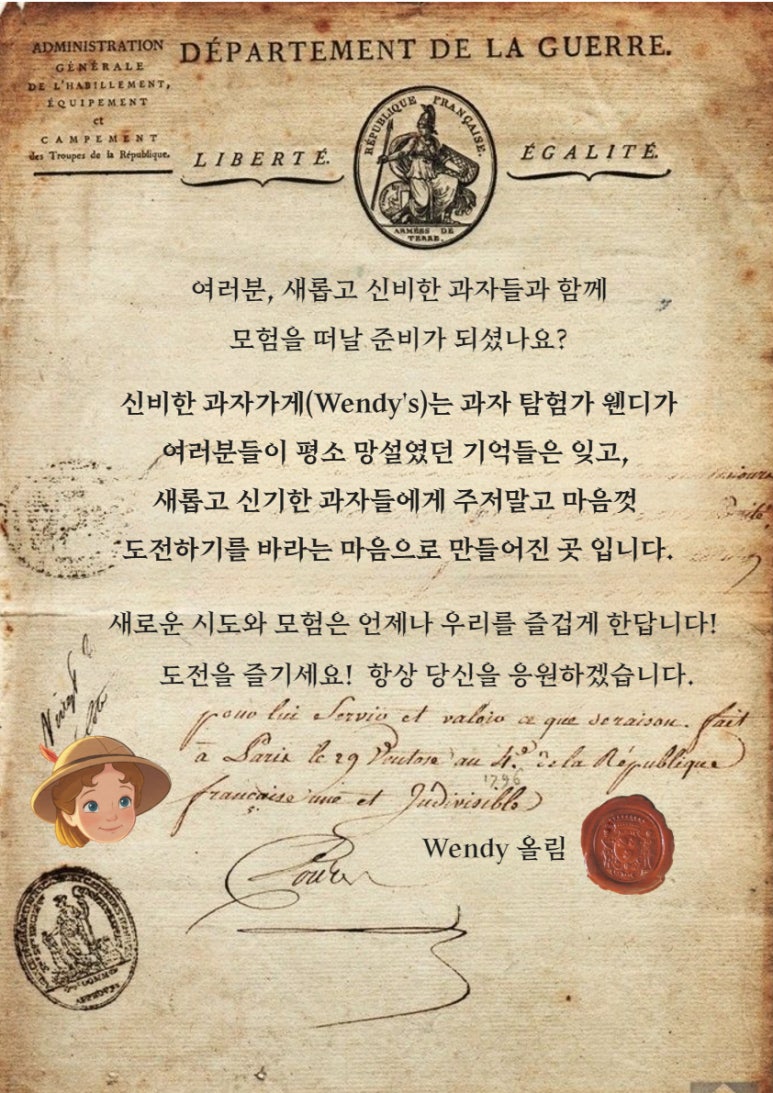 ADMINISTRATION
GÉNÉRALE
DE L'HABILLEMENT,
ÉQUIPEMENT
et
CAMPEMENT
des Troupes de la République.
DÉPARTEMENT DE LA GUERRE.
LIBERTÉ.
RÉPUBLIQUE FRANÇAISE.
ARMÉES DE
TERRE.
ÉGALITÉ.
여러분, 새롭고 신비한 과자들과 함께
모험을 떠날 준비가 되셨나요?
신비한 과자가게(Wendy's)는 과자 탐험가 웬디가
여러분들이 평소 망설였던 기억들은 잊고,
새롭고 신기한 과자들에게 주저말고 마음껏
도전하기를 바라는 마음으로 만들어진 곳 입니다.
새로운 시도와 모험은 언제나 우리를 즐겁게 한답니다!
도전을 즐기세요! 항상 당신을 응원하겠습니다.
pour lui Servir et valoir ce que de raison. fait
à Paris le 29 Ventose au 4e. de la République
1796
française une et Indivisible
Wendy 올림